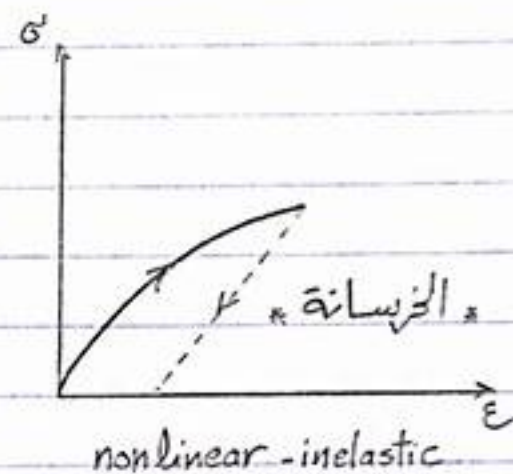 σ
* الخرسانة *
ε
nonlinear-inelastic